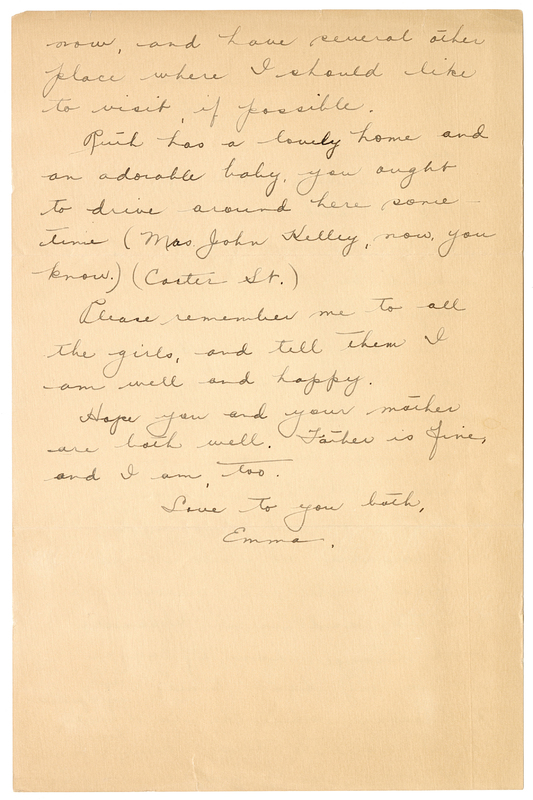 now, and have several other
place where I should like
to visit, if possible.
Ruth has a lovely home and
an adorable baby, you ought
to drive around here some-
time (Mrs. John Kelley, now, you
know.) (Carter St.)
Please remember me to all
the girls, and tell them I
am well and happy.
Hope you and your mother
are both well. Father is fine,
and I am, too.
Love to you both,
Emma.